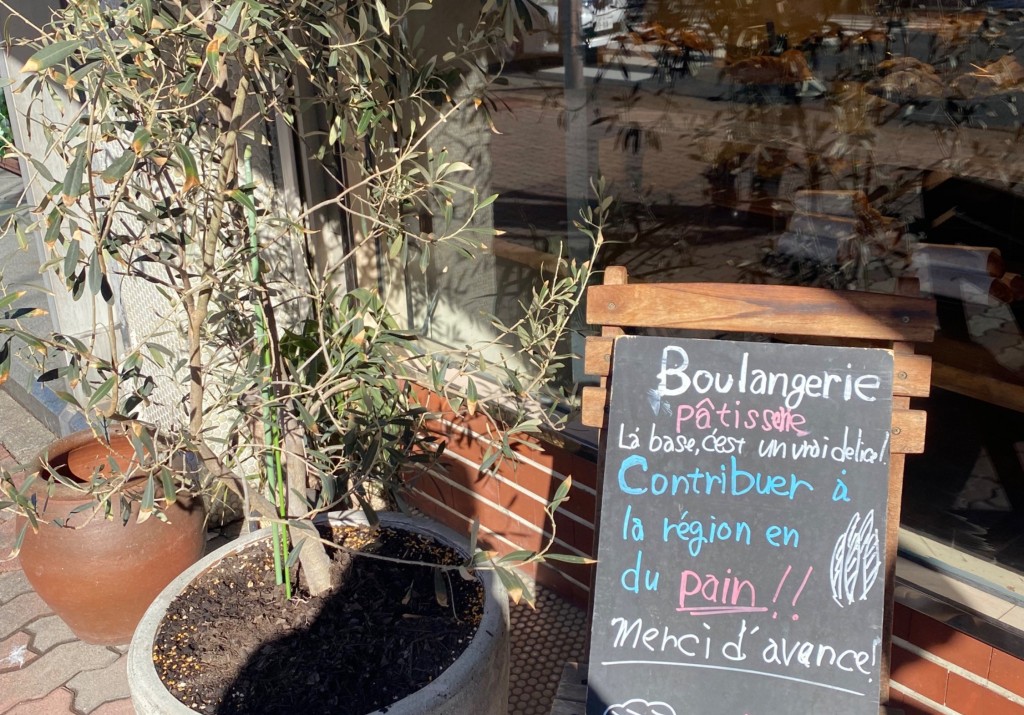 Boulangerie
pâtisserie
Là base, c'est un vrai délice!
Contribuer à
la région en
du pain!!
Merci d'avance!